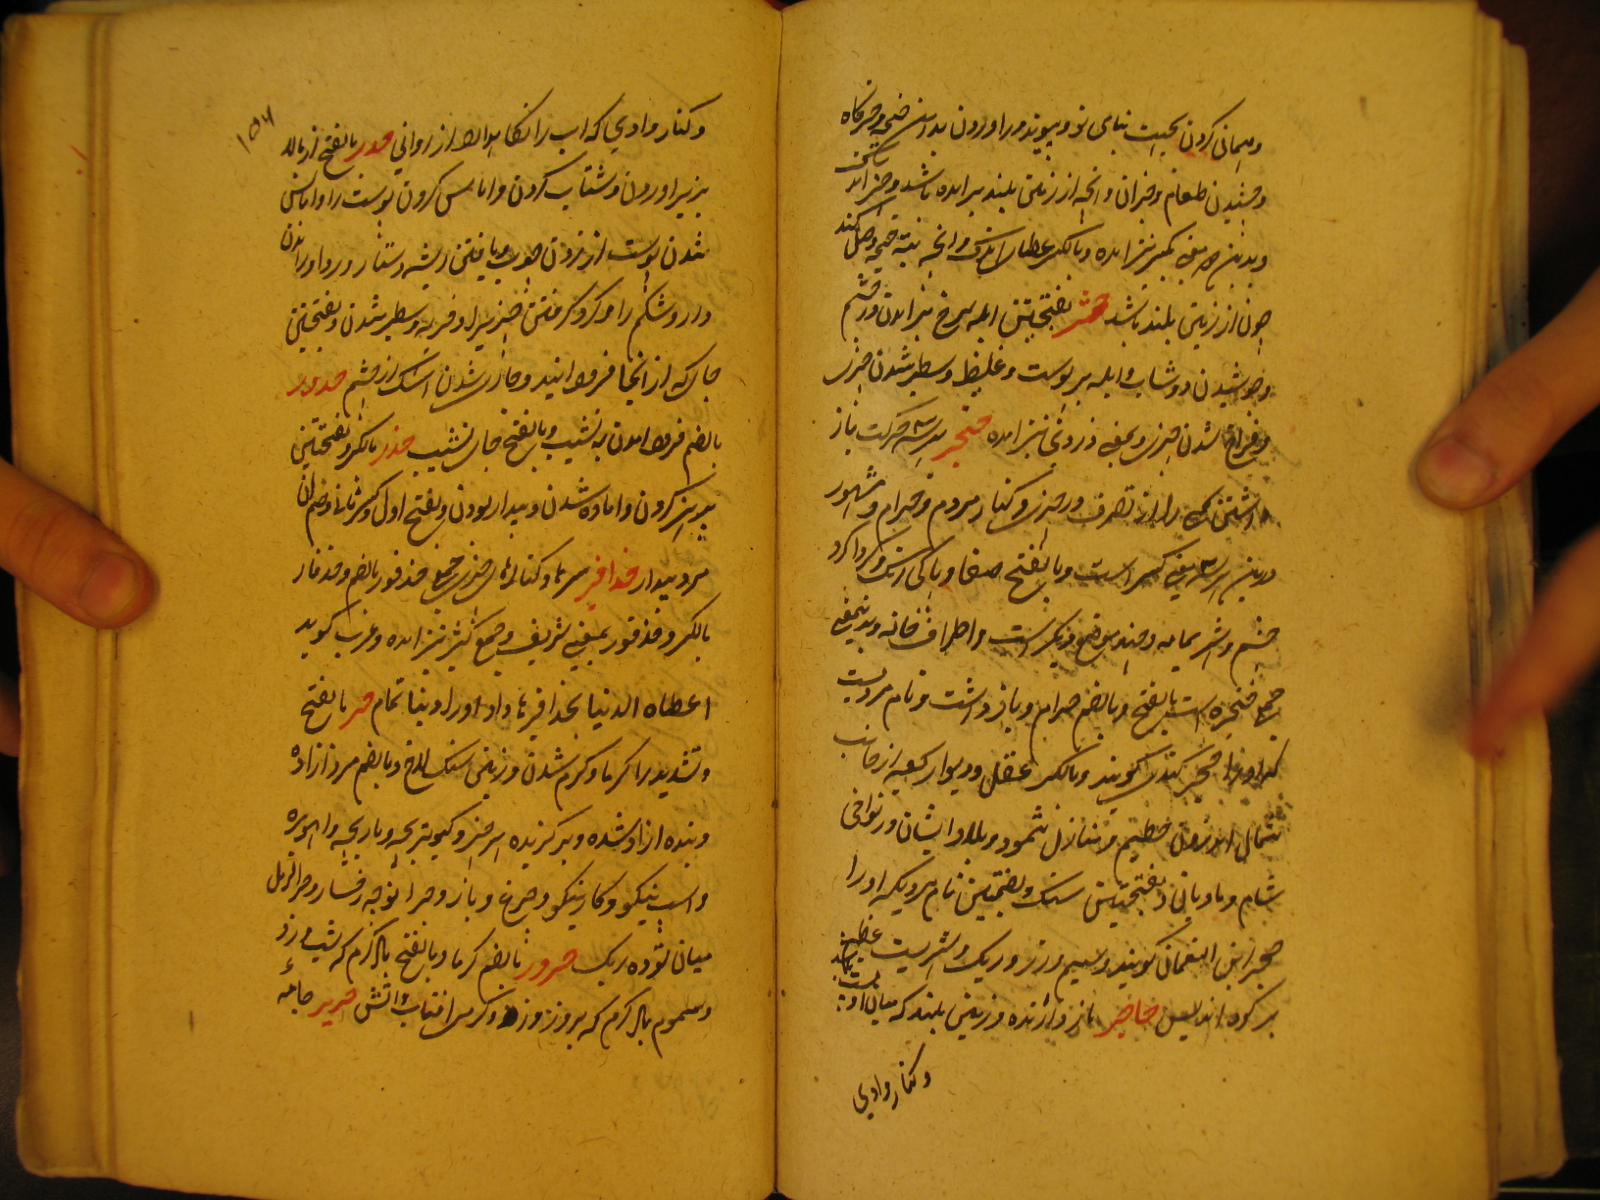 ومهمانی کردن بجهت بنای نو و پیوند
وچشیدن طعام وجز آن وآنچه از زمین بلند برآمده باشد
وبدین معنی بکسر نیز آمده وبالکسر عطای اندک وآنچه
چون از زمین بلند باشد حثر بفتحتین آبله سرخ برآمدن در چشم
وجوشیدن دوشاب وآبله بر پوست وغلیظ وسطبر شدن چیزی
وفراخ شدن چیزی وبمعنی نیز آمده حنجر بهر سه حرکت باز
داشتن کسی را از تصرف در چیزی وکنار مردم وحرام ومشهور
درین بهر سه معنی کسر است وبالفتح
چشم وشهر یمامه وچند موضع دیگر است واطراف خانه وبدینمعنی
جمع حجره است بالفتح وبالضم حرام وبازداشت ونام مردیست
که او را حجر کندی گویند وبالکسر عقل ودیوار کعبه از جانب
شمال اندرون حطیم ومنازل ثمود وبلاد ایشان در نواحی
شام ومادیان وبفتحتین سنگ وبضمتین نام مردیکه او را
حجر ابن النعمان گویند وسیم وزر وریگ وشهریست عظیم
بر کوه اندلس حاجر بازدارنده وزمین بلند که میان او پست باشد
وکنار وادی
۱۵۴
وکنار وادی که آب را نگاه دارد از روانی حدر بالفتح از بالا
بزیر آوردن وشتاب کردن وآماس کردن پوست را وآماس
شدن پوست از زدن چوب وبافتن ریشه دستار
دارو شکم را وگرد گرفتن چیزیرا وفربه وسطبر شدن وبفتحتین
جای که از آنجا فرود آیند وجاری شدن اشک از چشم حدور
بالضم فرود آمدن به نشیب وبالفتح جای نشیب حذر بالکسر وبفتحتین
پرهیز کردن وآماده شدن وبیدار بودن وبفتح اول وکسر ثانی وضم آن
مرد بیدار حذافیر سرها وکنارهای چیزی جمع حذفور بالضم وحذفار
بالکسر وحذفور بمعنی شریف وجمع کثیر نیز آمده وعرب گوید
اعطاه الدنیا بحذافیرها داد او را دنیا تمام حر بالفتح
وتشدید را گرما وگرم شدن وزمین سنگ لاخ وبالضم مرد آزاده
وبنده آزاد شده وبرگزیده هر چیز وکبوتر بچه ومار بچه وآهو بره
واسپ نیکو وکار نیکو وچرغ وباز وحر الوجه رخسار وحر الرمل
میان توده ریگ حرور بالضم گرما وبالفتح باد گرم که شب وزد
وسموم باد گرم که بروز وزد وگرمی آفتاب وآتش حریر جامهٔ